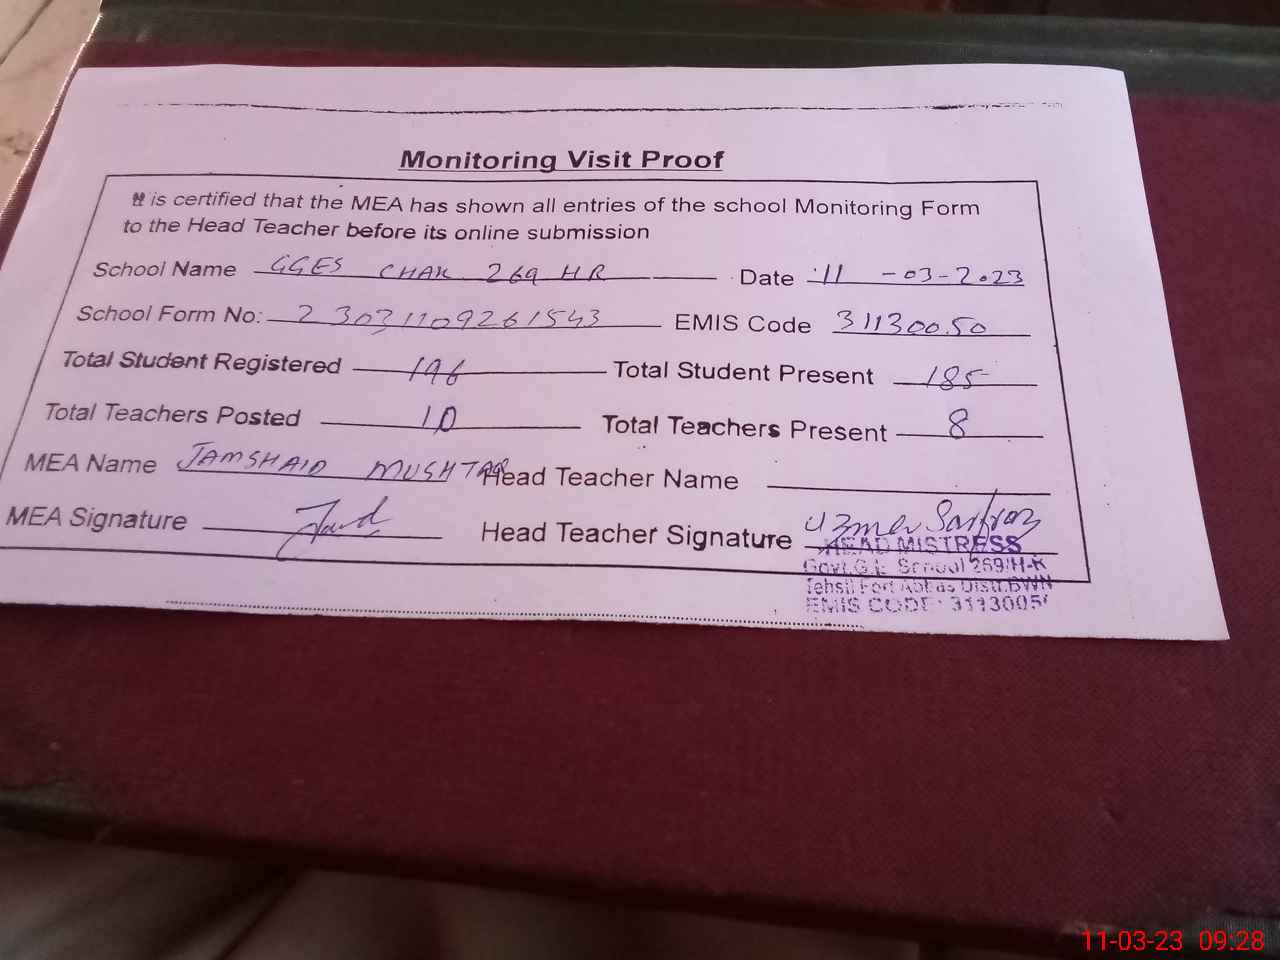 Monitoring Visit Proof
It is certified that the MEA has shown all entries of the school Monitoring Form
to the Head Teacher before its online submission
School Name GGES CHAK 269 HR Date 11-03-2023
School Form No: 23031109261543 EMIS Code 31130050
Total Student Registered 196 Total Student Present 185
Total Teachers Posted 10 Total Teachers Present 8
MEA Name JAMSHAID MUSHTAQ Head Teacher Name
MEA Signature Head Teacher Signature Uzma Sarfraz
HEAD MISTRESS
Govt.G.E School 269/H-R
Tehsil Fort Abbas Distt.BWN
EMIS CODE: 3113005
11-03-23 09:28